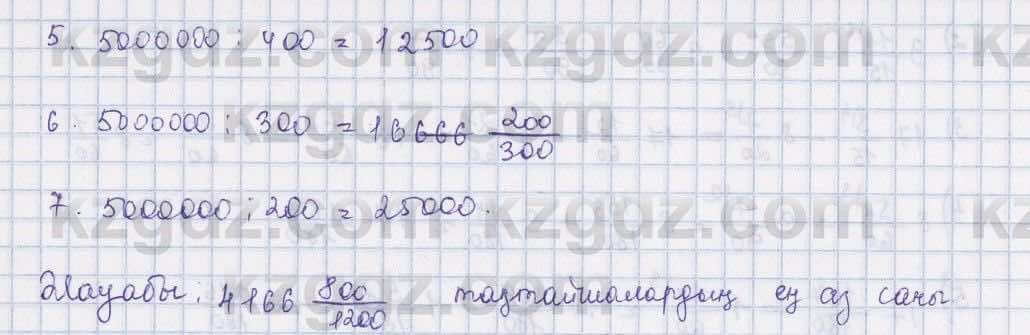 5. 5000000 : 400 = 12500
6. 5000000 : 300 = 16666 200/300
7. 5000000 : 200 = 25000.
Жауабы: 4166 800/1200 тақтайшалардың ең аз саны
kzgdz.com kzgdz.com